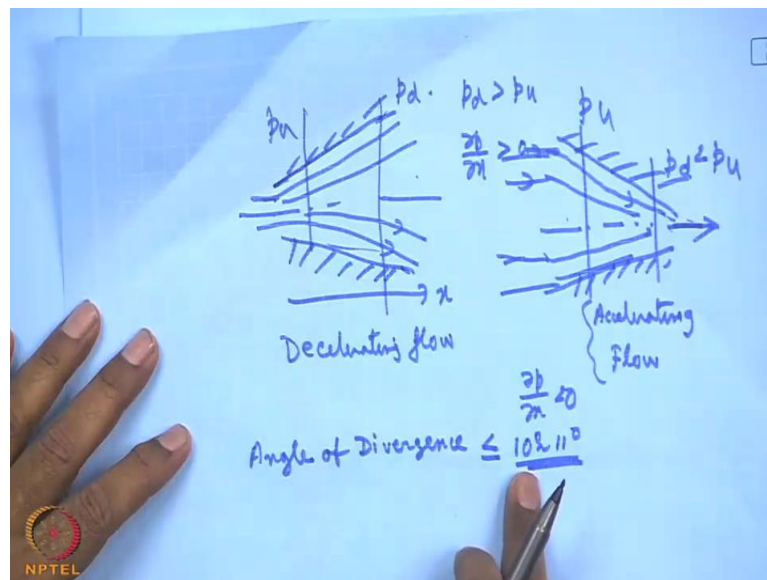 pu
pd.
pd > pu
∂p/∂x > 0
x
Decelerating flow
pu
pd < pu
Accelerating
Flow
∂p/∂x < 0
Angle of Divergence ≤ 10° 11°
NPTEL